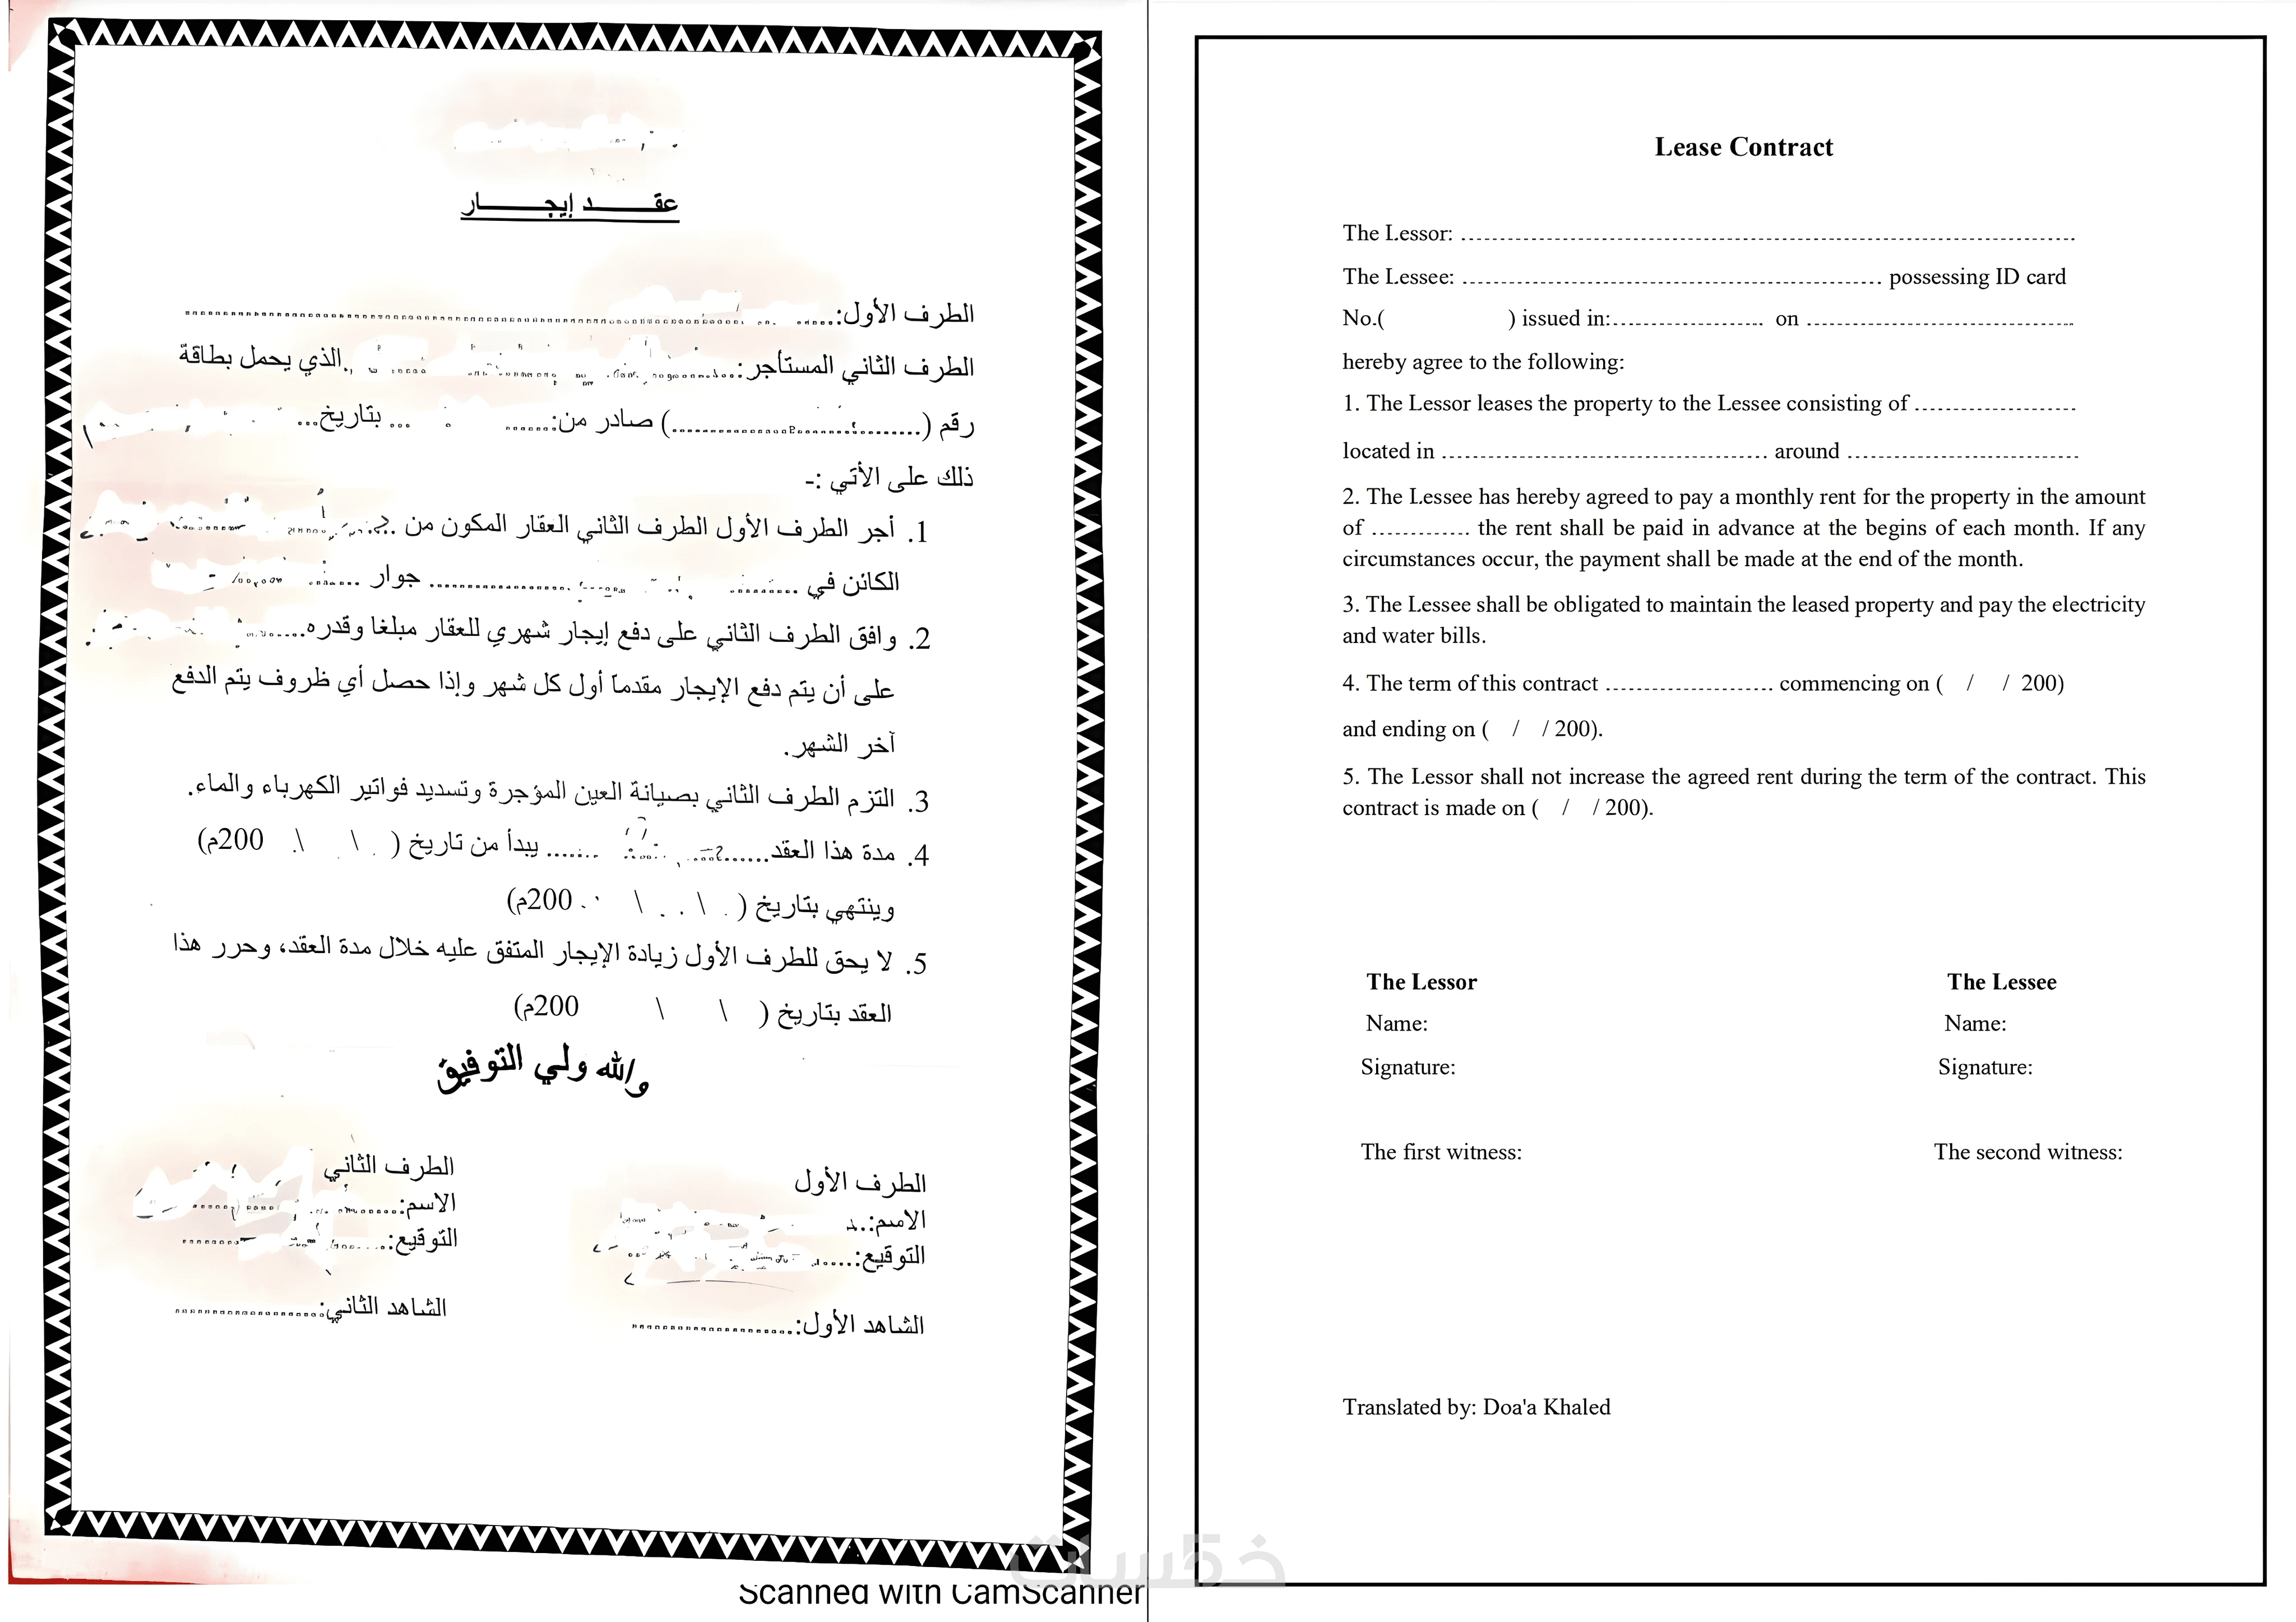 عقـــد إيجـــار
الطرف الأول:
الطرف الثاني المستأجر: الذي يحمل بطاقة
رقم ( ) صادر من: بتاريخ
ذلك على الأتي :-
1. أجر الطرف الأول الطرف الثاني العقار المكون من
الكائن في جوار
2. وافق الطرف الثاني على دفع إيجار شهري للعقار مبلغا وقدره
على أن يتم دفع الإيجار مقدماً أول كل شهر وإذا حصل أي ظروف يتم الدفع
آخر الشهر.
3. التزم الطرف الثاني بصيانة العين المؤجرة وتسديد فواتير الكهرباء والماء.
4. مدة هذا العقد يبدأ من تاريخ ( \ \ 200م)
وينتهي بتاريخ ( \ \ 200م)
5. لا يحق للطرف الأول زيادة الإيجار المتفق عليه خلال مدة العقد، وحرر هذا
العقد بتاريخ ( \ \ 200م)
والله ولي التوفيق
الطرف الأول
الاسم:
التوقيع:
الشاهد الأول:
الطرف الثاني
الاسم:
التوقيع:
الشاهد الثاني:
Scanned with CamScanner
Lease Contract
The Lessor: ....................
The Lessee: .................... possessing ID card
No.( ) issued in:.................... on ....................
hereby agree to the following:
1. The Lessor leases the property to the Lessee consisting of ....................
located in .................... around ....................
2. The Lessee has hereby agreed to pay a monthly rent for the property in the amount
of ............. the rent shall be paid in advance at the begins of each month. If any
circumstances occur, the payment shall be made at the end of the month.
3. The Lessee shall be obligated to maintain the leased property and pay the electricity
and water bills.
4. The term of this contract .................... commencing on ( / / 200)
and ending on ( / / 200).
5. The Lessor shall not increase the agreed rent during the term of the contract. This
contract is made on ( / / 200).
The Lessor
Name:
Signature:
The first witness:
The Lessee
Name:
Signature:
The second witness:
Translated by: Doa'a Khaled
خمسات